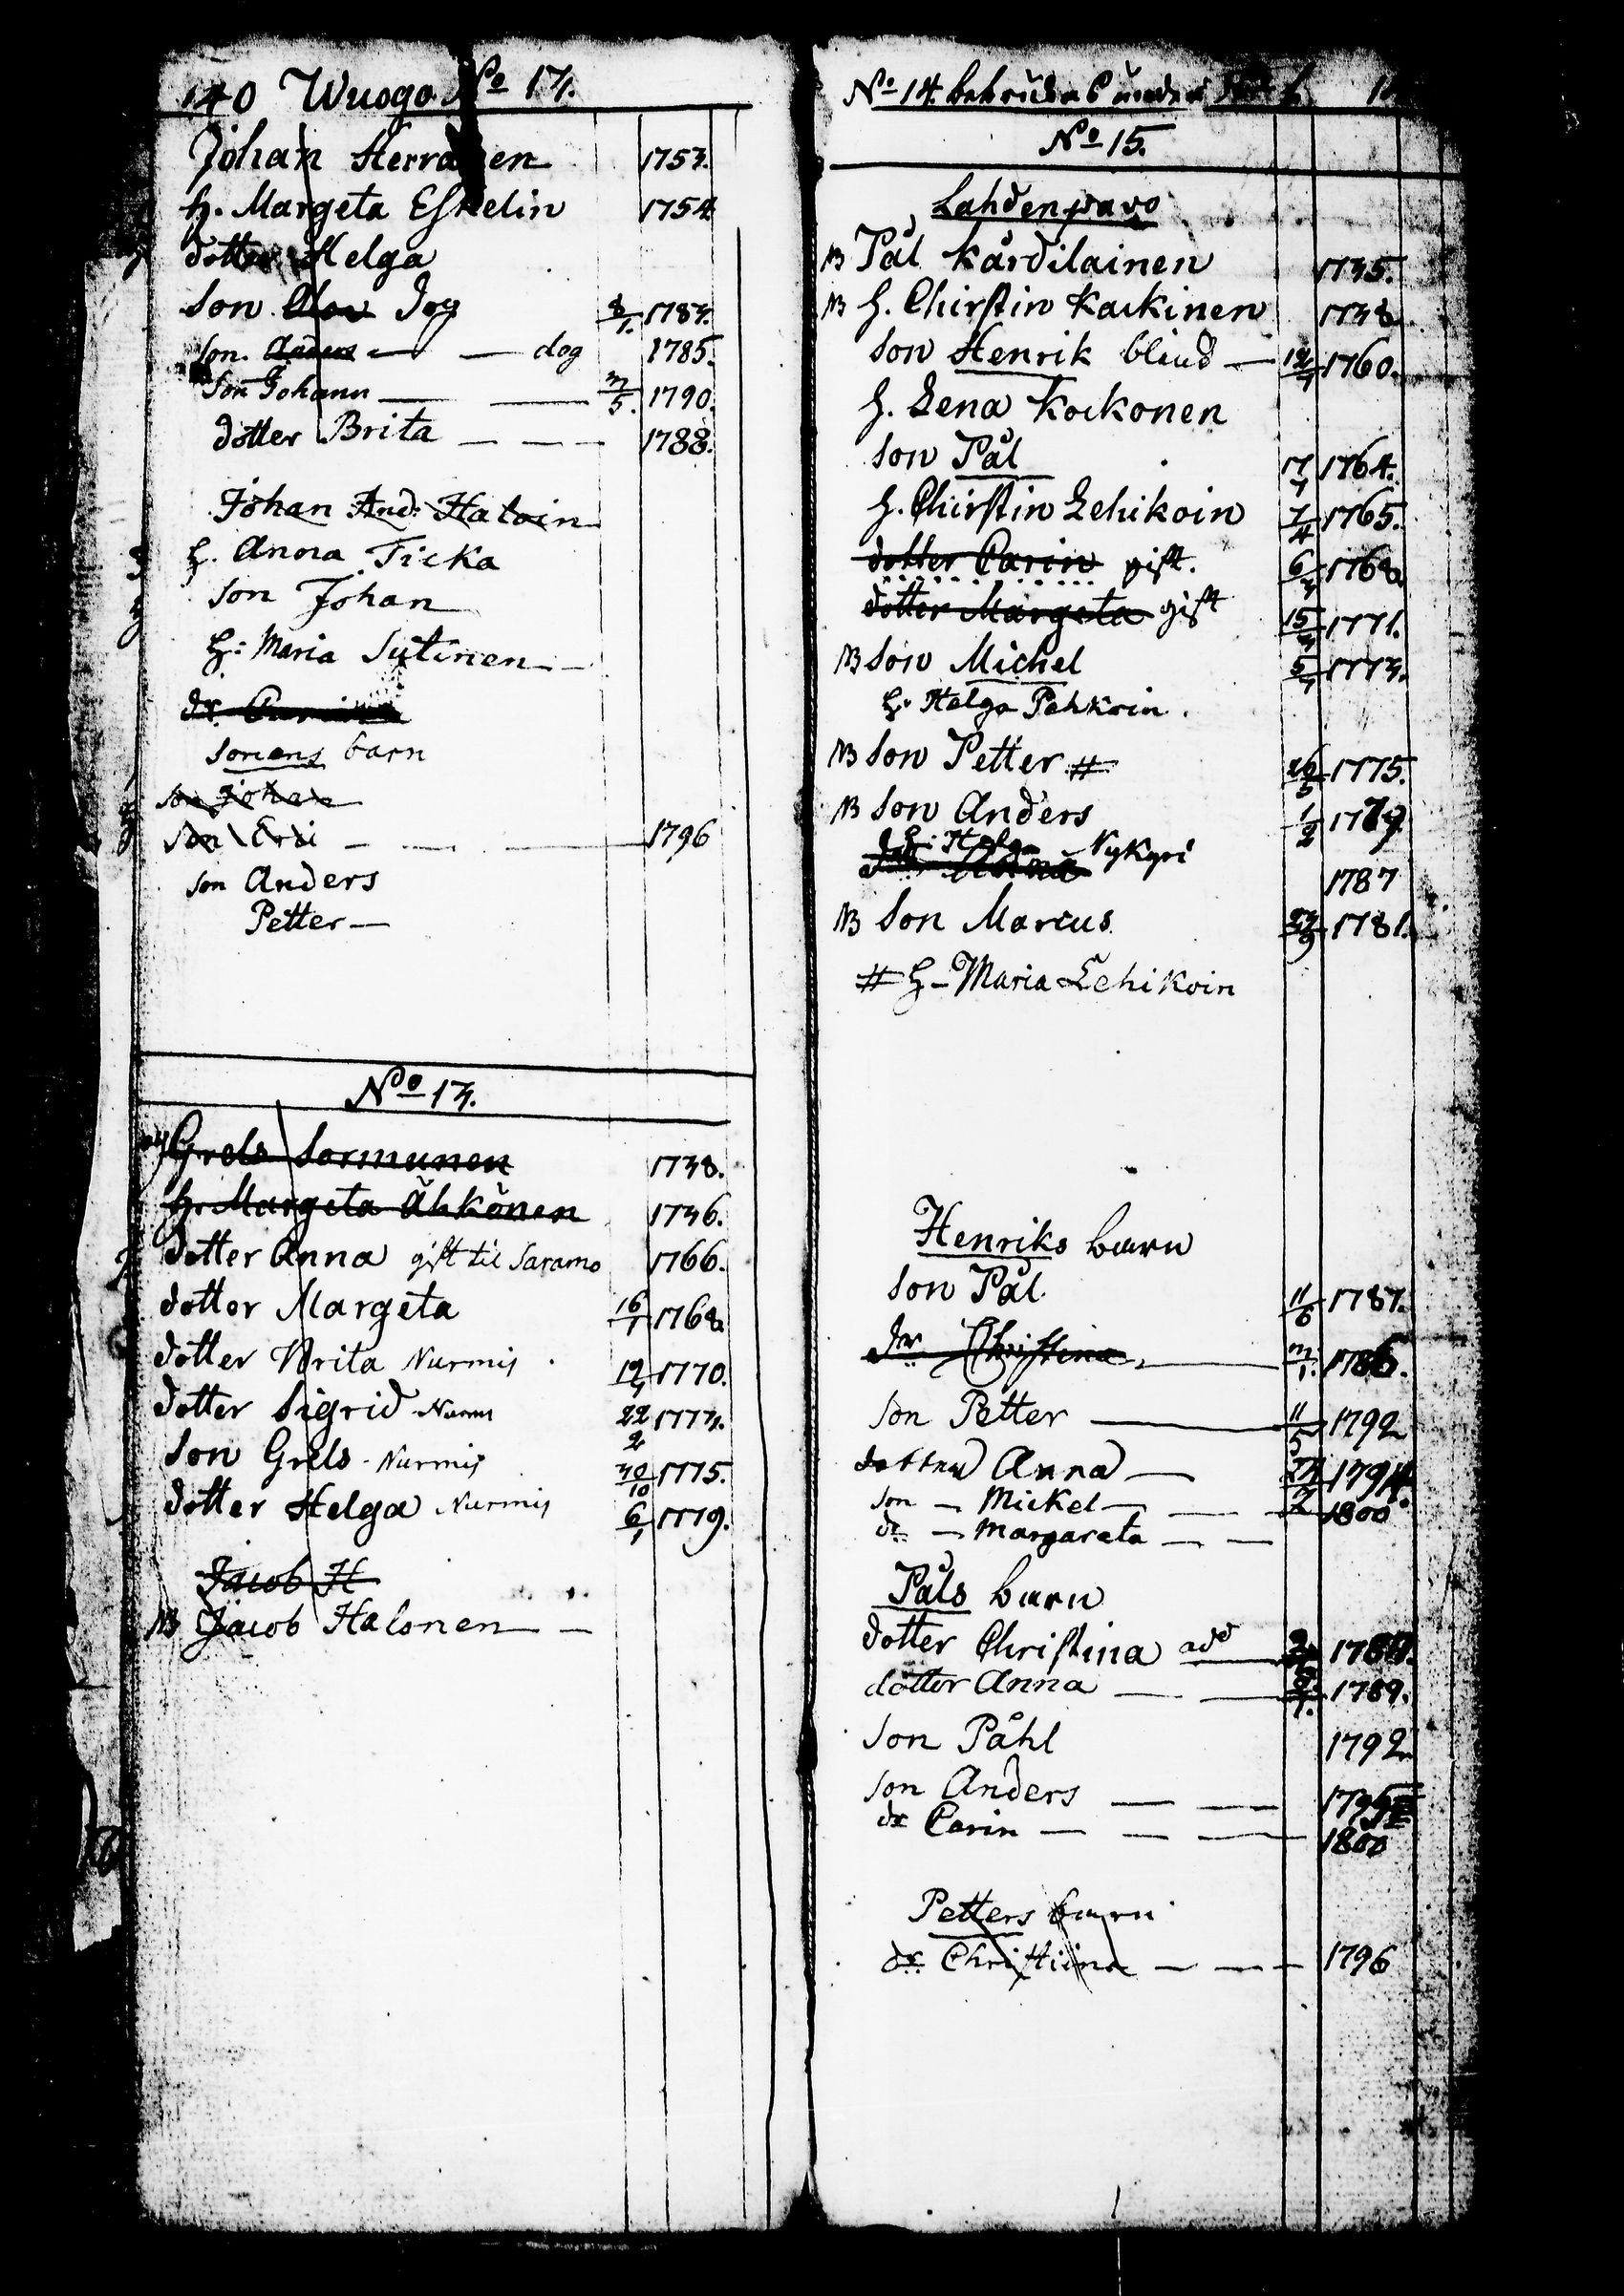 140 Wuogo No 13.
Johan Herranen 1753.
h. Margeta Eskelin 1754
dotter Helga
son Olov dog 8/1. 1783.
son. Anders dog 1785.
son Johann 3/5. 1790.
dotter Brita 1788.
Johan And: Haloin
h. Anna Ticka
son Johan
h: Maria Sutinen
dr.
sonens barn
son Johan
son Eric 1796
son Anders
Petter
No 13.
Grels Sormunen 1738.
h. Margeta Åhkönen 1736.
dotter Anna gift til Saramo 1766.
dotter Margeta 16/1 1768
dotter Brita Nurmis 12/1 1770.
dotter Sigrid Nurms 22/2 1773.
son Grels Nurmis 30/10 1775.
dotter Helga Nurmis 6/1 1779.
Jacob H
NB Jacob Halonen
No 14. under
No 15.
Lahdenpavo
NB Pål Kårdilainen 1735.
NB h. Chirstin Kackinen 1738
son Henrik blind 12/1 1760.
h. Lena Kockonen
son Pål 17/1 1764.
h. Chirstin Lehikoin 7/4 1765.
dotter Carin gift. 6/3 1768
dotter Margeta gift 15/3 1771.
NB son Michel 5/1 1773.
h. Helga Pehkoin.
NB son Petter # 26/5 1775.
NB son Anders 1/2 1779
h. Helga Nykyri
1787
NB son Marcus 23/9 1781.
# h Maria Lehikoin
Henriks barn
son Pål. 11/6 1787.
dr Christina 3/1. 1786.
son Petter 11/5 1792
dotter Anna 1794
son Mickel 1800
dr Margareta
Påls barn
dotter Christina
dotter Anna 1789.
son Påhl 1792
son Anders
dr Carin 1800
Petters barn
dr. Christiina 1796